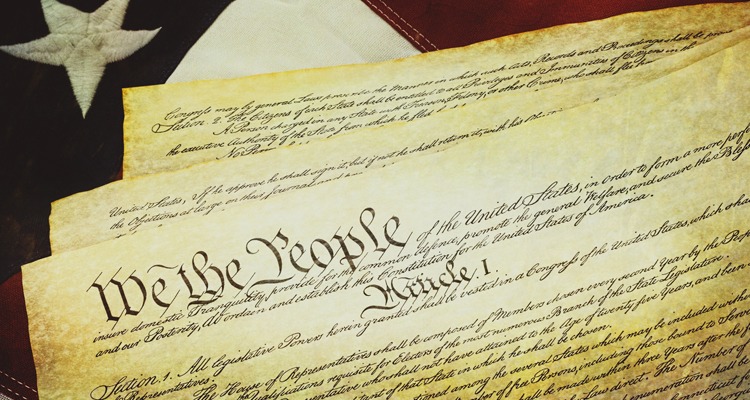 Congress may by general Laws prescribe the Manner in which such Acts, Records and Proceedings shall be
Section. 2. The Citizens of each State shall be entitled to all Privileges and Immunities of Citizens in
A Person charged in any State with Treason, Felony, or other Crime, who shall flee
the executive Authority of the State from which he fled
No Person
United States; If he approve he shall sign it, but if not he shall return it, with his
the Objections at large on their Journal
We the People of the United States, in order to form a more perf
insure domestic Tranquility, provide for the common defence, promote the general Welfare, and secure the Bless
and our Posterity, do ordain and establish this Constitution for the United States of America.
Article. I.
Section. 1. All legislative Powers herein granted shall be vested in a Congress of the United States, which sha
Representatives.
The House of Representatives shall be composed of Members chosen every second Year by the Peop
Qualifications requisite for Electors of the most numerous Branch of the State Legislature.
who shall not have attained to the Age of twenty five Years, and been
of that State in which he shall be chosen.
among the several States which may be included with
of free Persons, including those bound to Serv
shall be made within three Years after the
Law direct. The Number of
enumeration shall